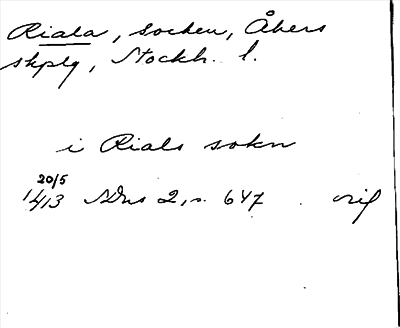 Riala, socken, Åkers
skplg, Stockh. l.
i Rials sokn
20/5
1413 SDns 2, s. 647 . orig